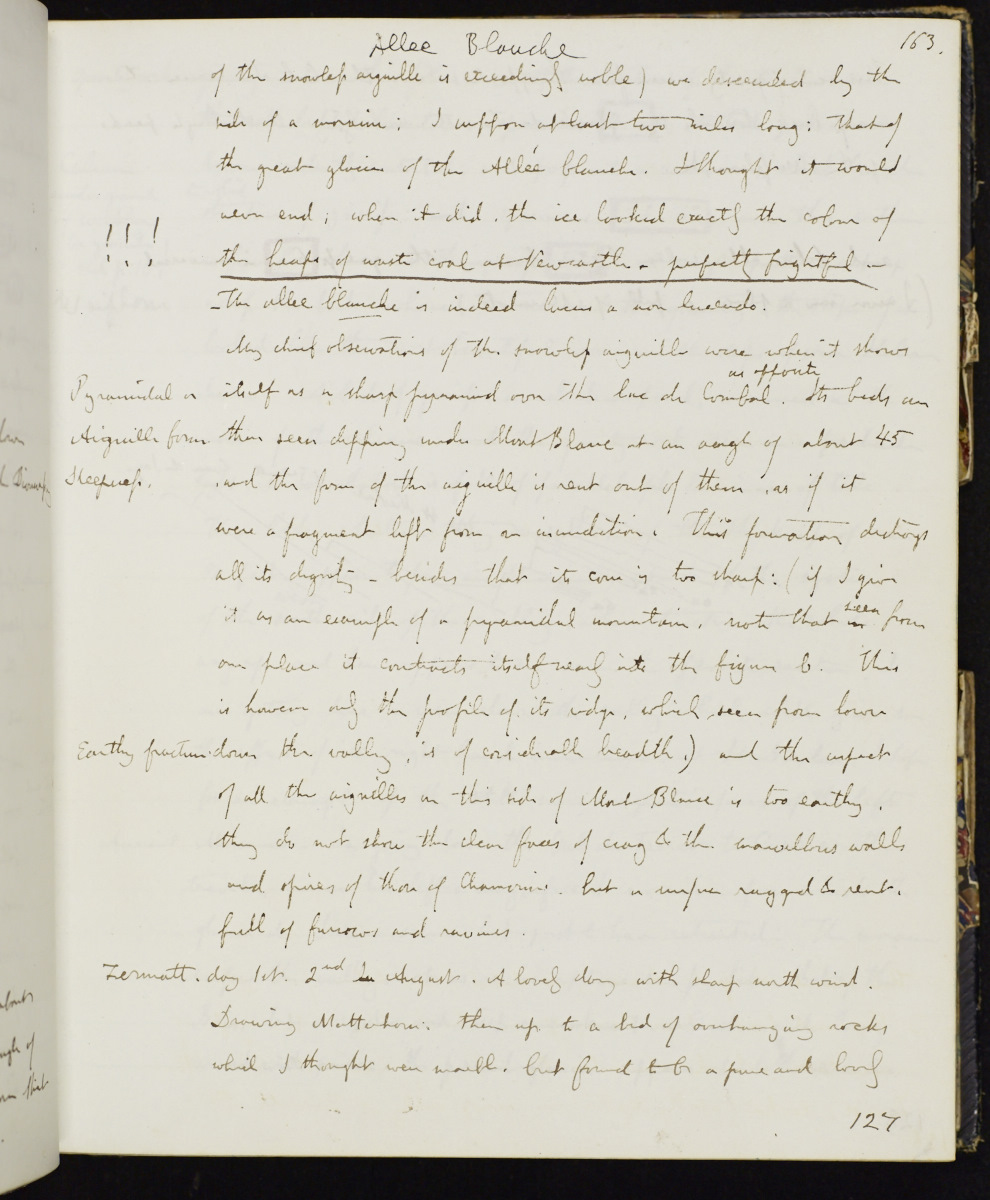 Allee Blanche
163.
of the snowless aiguille is exceedingly noble) we descended by the
side of a moraine: I suppose at least two miles long: that of
the great glacier of the Allée blanche. I thought it would
never end; when it did, the ice looked exactly the colour of
!!!
the heaps of waste coal at Newcastle - perfectly frightful -
- The allee blanche is indeed lucus a non lucendo.
My chief observations of the snowless aiguille were when it shows
as opposite
itself as a sharp pyramid over the lac de Combal. Its beds are
Pyramidal or
Aiguille form
Steepness.
then seen dipping under Mont Blanc at an angle of about 45
and the form of the aiguille is rent out of them, as if it
were a fragment left from an inundation. This formation destroys
all its dignity - besides that its cone is too sharp: (if I give
it as an example of a pyramidal mountain, note that seen from
one place it contracts itself nearly into the figure b. This
is however only the profile of its ridge, which seen from lower
Earthy fracture
down the valley, is of considerable breadth.) and the aspect
of all the aiguilles on this side of Mont Blanc is too earthy,
they do not show the clear faces of crag & the marvellous walls
and spires of those of Chamouni. but a ragged & rent.
full of furrows and ravines.
Zermatt. day 1st. 2nd August. A lovely day with sharp north wind.
Drawing Matterhorn. then up to a bed of overhanging rocks
which I thought were marble. but found to be a pure and lovely
127